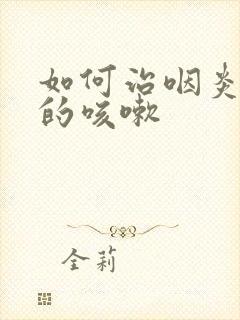 如何治咽炎
的咳嗽
全莉